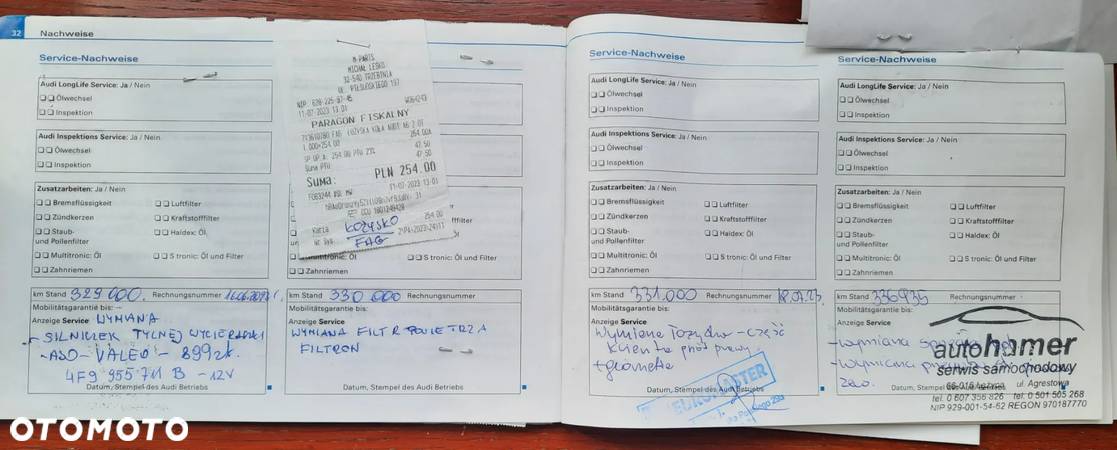 32 Nachweise
Service-Nachweise
Audi LongLife Service: Ja / Nein
Ölwechsel
Inspektion
Audi Inspektions Service: Ja / Nein
Ölwechsel
Inspektion
Zusatzarbeiten: Ja / Nein
Bremsflüssigkeit
Luftfilter
Zündkerzen
Kraftstofffilter
Staub-
und Pollenfilter
Haldex: Öl
Multitronic: Öl
S tronic: Öl und Filter
Zahnriemen
km Stand 329 000. Rechnungsnummer
Mobilitätsgarantie bis: -
Anzeige Service WYMIANA
SILNICZEK TYLNEJ WYCIERACZKI
- ASO - VALEO - 899 zł.
4F9 955 711 B - 12V
Datum, Stempel des Audi Betriebs
M-PARTS
MICHAŁ LEŚKO
32-540 TRZEBINIA
UL. PIŁSUDSKIEGO 197
11-07-2023 13:01
PARAGON FISKALNY
254.00A
1.000×254.00
SP.OP.A: 254.00 PTU 23% 47.50
Suma PTU 47.50
SUMA: PLN 254.00
11-07-2023 13:01
Karta 254.00
ŁOŻYSKO
FAG
Zahnriemen
km Stand 330 000 Rechnungsnummer
Mobilitätsgarantie bis:
Anzeige Service
WYMIANA FILTR POWIETRZA
FILTRON
Datum, Stempel des Audi Betriebs
Service-Nachweise
Audi LongLife Service: Ja / Nein
Ölwechsel
Inspektion
Audi Inspektions Service: Ja / Nein
Ölwechsel
Inspektion
Zusatzarbeiten: Ja / Nein
Bremsflüssigkeit
Luftfilter
Zündkerzen
Kraftstofffilter
Staub-
und Pollenfilter
Haldex: Öl
Multitronic: Öl
S tronic: Öl und Filter
Zahnriemen
km Stand 331.000 Rechnungsnummer 18.07.23
Mobilitätsgarantie bis:
Anzeige Service
Wymiana łożyska - część
klienta przód prawy
+ geometria
EUROMASTER
Datum, Stempel des Audi Betriebs
Service-Nachweise
Audi LongLife Service: Ja / Nein
Ölwechsel
Inspektion
Audi Inspektions Service: Ja / Nein
Ölwechsel
Inspektion
Zusatzarbeiten: Ja / Nein
Bremsflüssigkeit
Luftfilter
Zündkerzen
Kraftstofffilter
Staub-
und Pollenfilter
Haldex: Öl
Multitronic: Öl
S tronic: Öl und Filter
Zahnriemen
km Stand 336935 Rechnungsnummer
Mobilitätsgarantie bis:
Anzeige Service
- wymiana
- wymiana
autohamer
serwis samochodowy
ul. Agrestowa
Datum, Stempel des Audi Betriebs
tel. 0 607 356 826 tel. 0 501 505 268
NIP 929-001-54-62 REGON 970187770
OTOMOTO